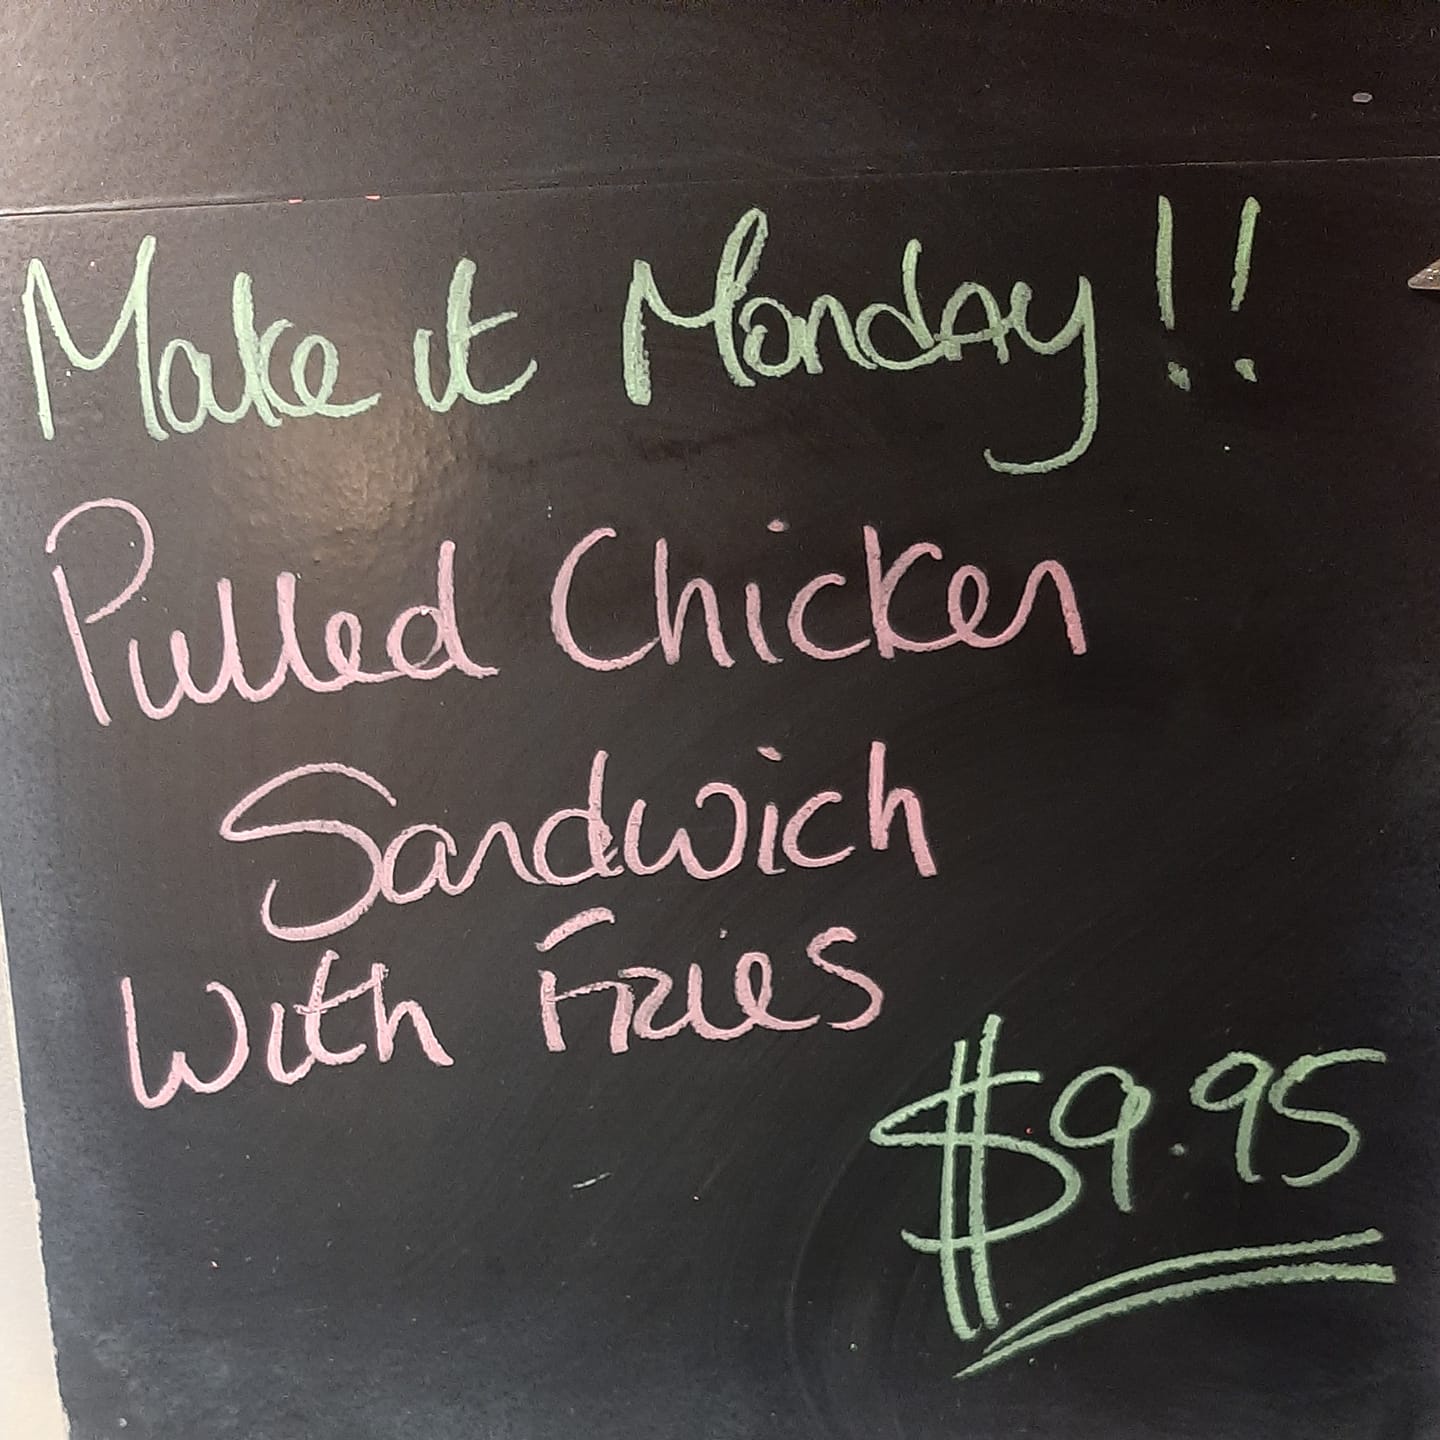 Make it Monday!!
Pulled Chicken
Sandwich
With Fries
$9.95